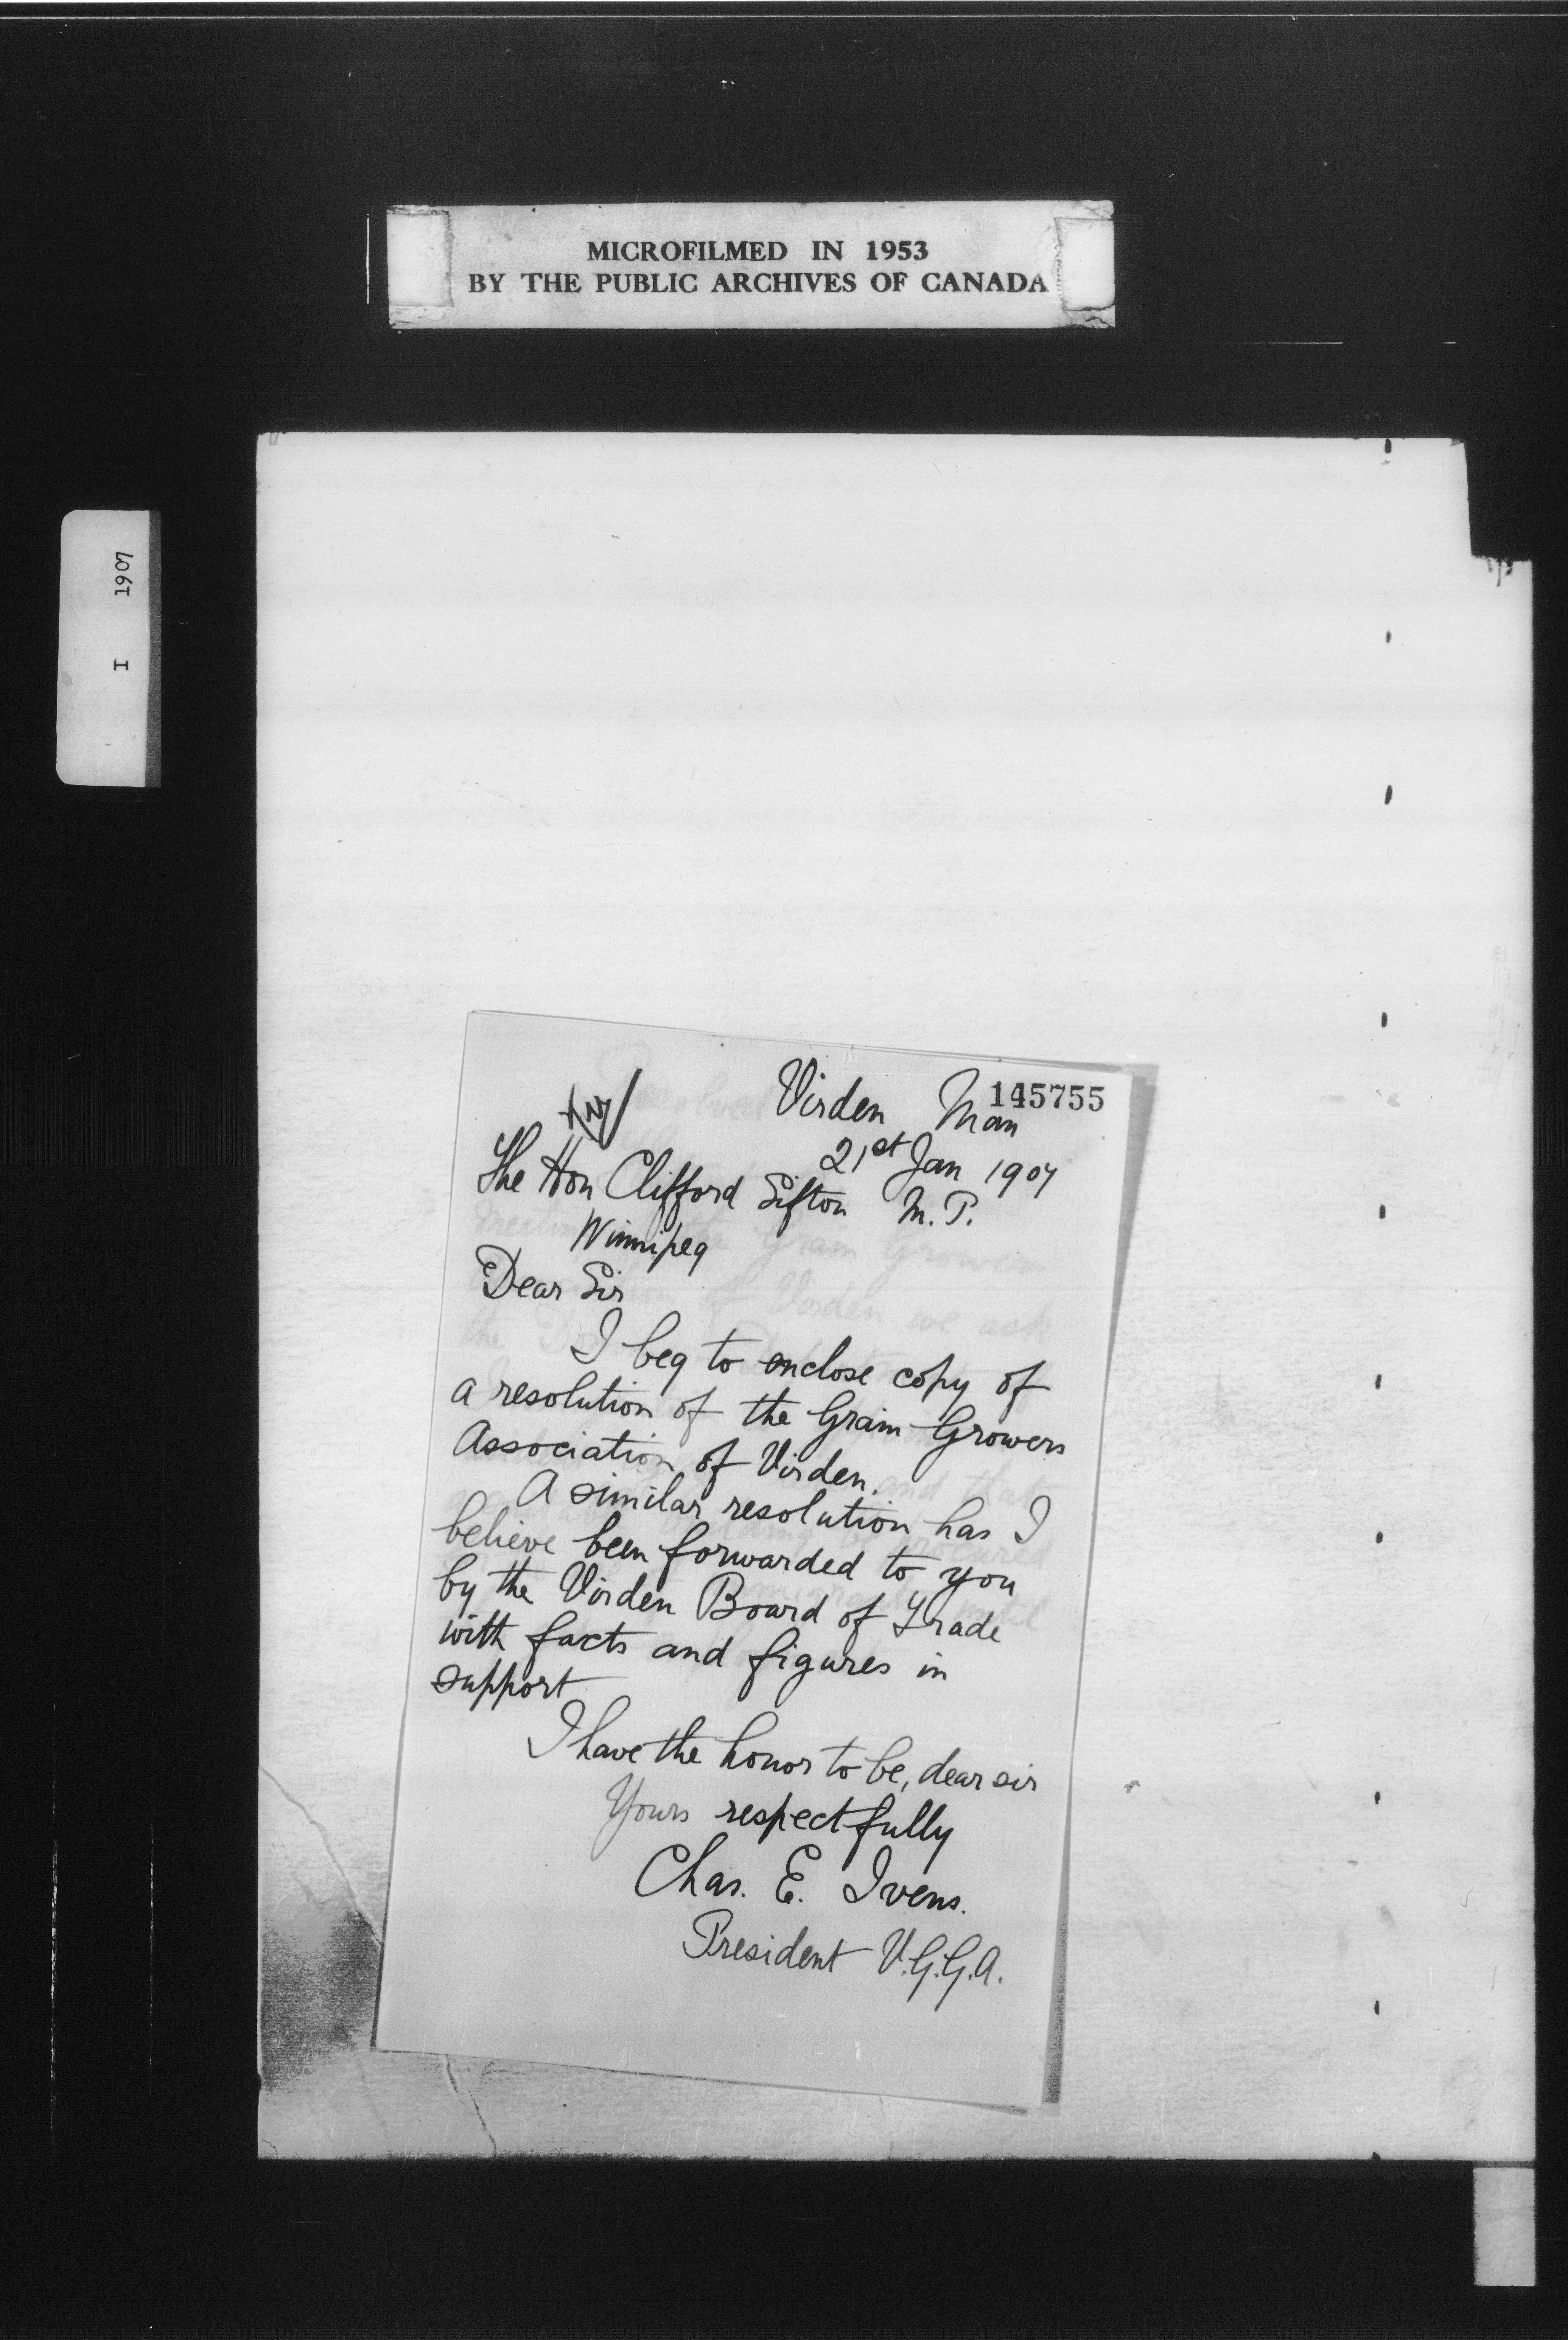 MICROFILMED IN 1953
BY THE PUBLIC ARCHIVES OF CANADA
I 1907
145755
Virden Man
21st Jan 1907
The Hon Clifford Sifton M.P.
Winnipeg
Dear Sir
I beg to enclose copy of
a resolution of the Grain Growers
Association of Virden.
A similar resolution has I
believe been forwarded to you
by the Virden Board of Trade
with facts and figures in
support
I have the honor to be, dear sir
Yours respectfully
Chas. E. Ivens.
President V.G.G.A.